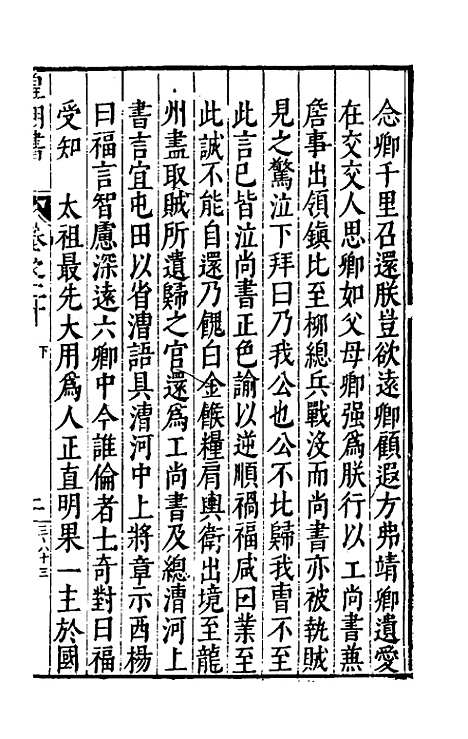 念卿千里召還朕豈欲遠卿顧遐方弗靖卿遺愛
在交交人思卿如父母卿强爲朕行以工尚書兼
詹事出領鎮比至柳總兵戰沒而尚書亦被執賊
見之驚泣下拜曰乃我公也公不比歸我曹不至
此言已皆泣尚書正色諭以逆順禍福咸曰業至
此誠不能自還乃餽白金餱糧肩輿衛出境至龍
州盡取賊所遺歸之官還爲工尚書及總漕河上
書言宜屯田以省漕語具漕河中上將章示西楊
曰福言智慮深遠六卿中今誰倫者士奇對曰福
受知　太祖最先大用爲人正直明果一主於國
皇明書
卷之二十
下
二
三八十三